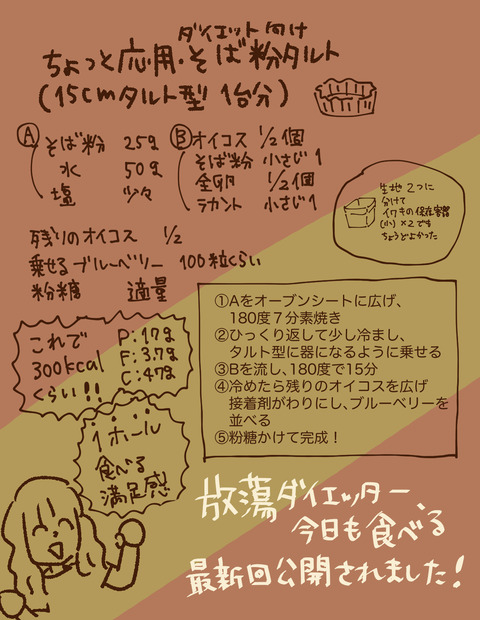 ダイエット向け
ちょっと応用・そば粉タルト
(15cmタルト型 1台分)
Ⓐ そば粉 25g
水 50g
塩 少々
Ⓑ オイコス 1/2個
そば粉 小さじ1
全卵 1/2個
ラカント 小さじ1
生地 2つに
分けて
イワキの保存容器
(小)×2です
ちょうどよかった
残りのオイコス 1/2
乗せるブルーベリー 100粒くらい
粉糖 適量
これで
300kcal
くらい!!
P:17g
F:3.7g
C:47g
①Aをオーブンシートに広げ、
180度7分素焼き
②ひっくり返して少し冷まし、
タルト型に器になるように乗せる
③Bを流し、180度で15分
④冷めたら残りのオイコスを広げ
接着剤がわりにし、ブルーベリーを
並べる
⑤粉糖かけて完成！
1ホール
食べる
満足感
放蕩ダイエッター、
今日も食べる
最新回公開されました！